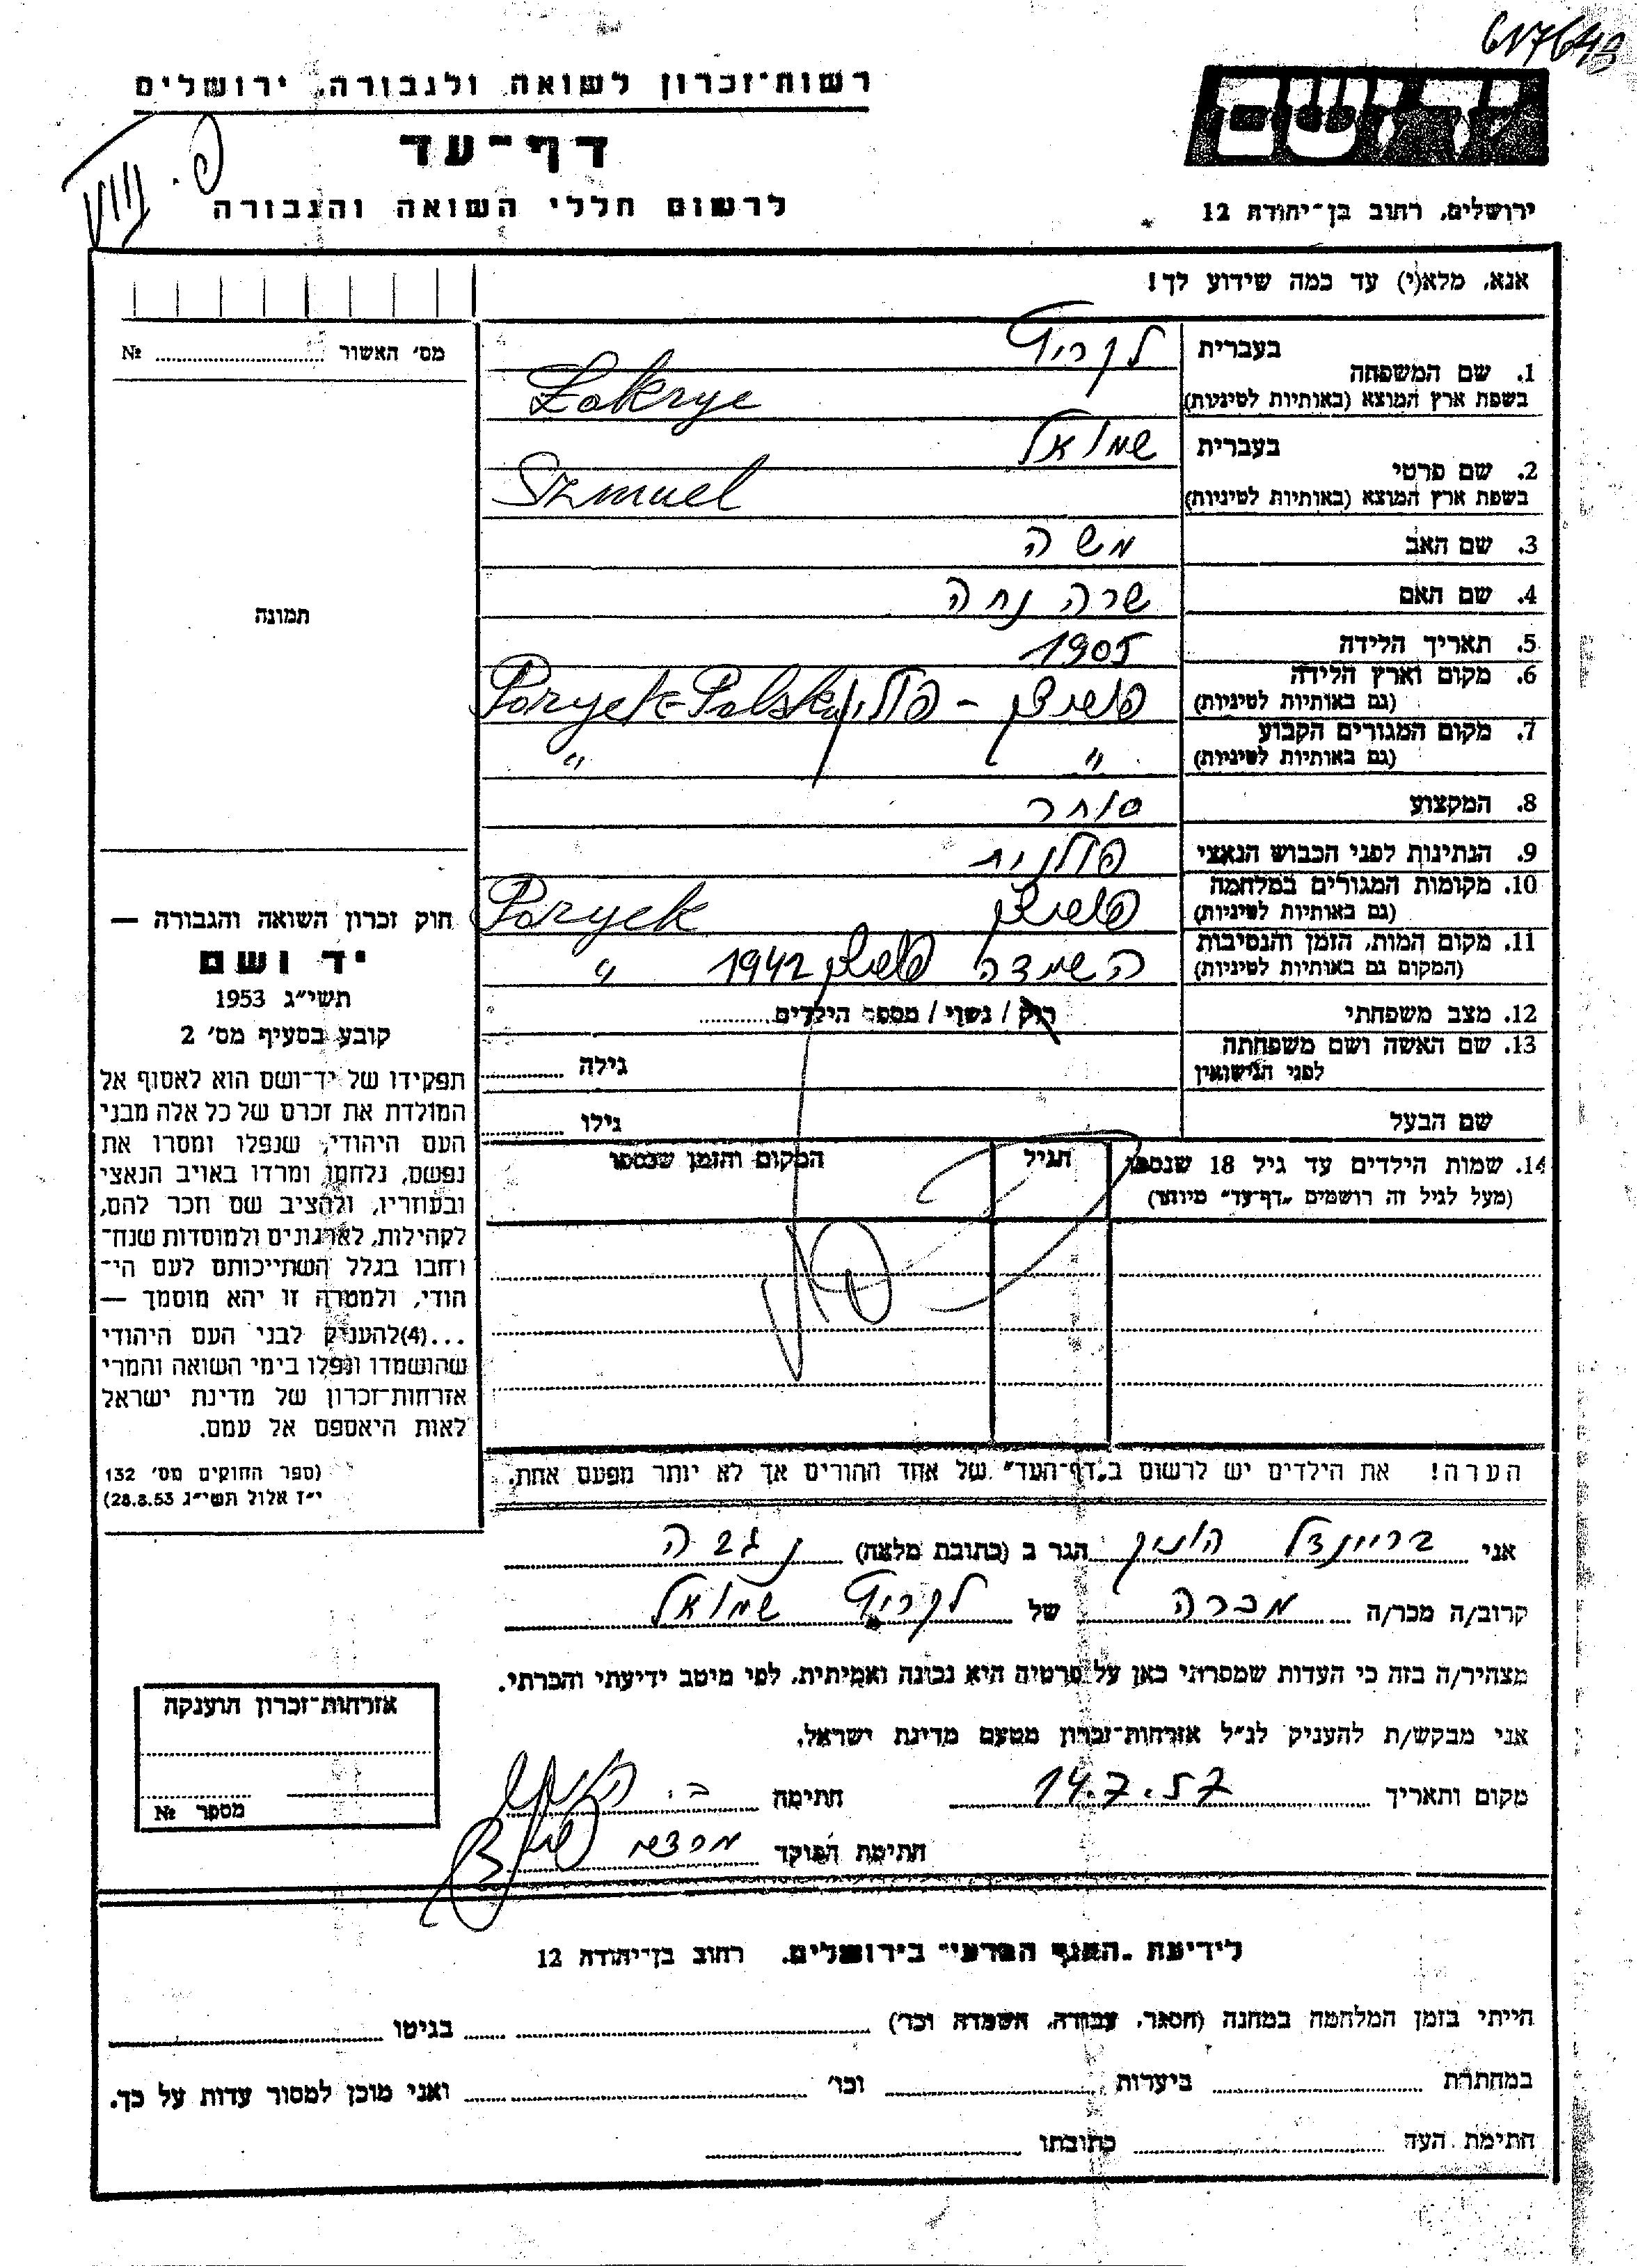 617649
רשות־זכרון לשואה ולגבורה, ירושלים
יד ושם
דף־עד
לרשום חללי השואה והגבורה
ירושלים, רחוב בן־יהודה 12
אנא, מלא(י) עד כמה שידוע לך!
מס׳ האשור № 
1. שם המשפחה
בעברית
לקריץ
בשפת ארץ המוצא (באותיות לטיניות) Lakryc
2. שם פרטי
בעברית שמואל
בשפת ארץ המוצא (באותיות לטיניות) Szmuel
3. שם האב משה
4. שם האם שרה נחה
5. תאריך הלידה 1905
6. מקום וארץ הלידה
(גם באותיות לטיניות) פוריצק - פולין Poryck-Polska
7. מקום המגורים הקבוע
(גם באותיות לטיניות) " "
8. המקצוע סוחר
9. הנתינות לפני הכבוש הנאצי פולנית
10. מקומות המגורים במלחמה
(גם באותיות לטיניות) פוריצק Poryck
11. מקום המות, הזמן והנסיבות
(המקום גם באותיות לטיניות) השמדה פוריצק 1942 "
12. מצב משפחתי רוק / נשוי / מספר הילדים
13. שם האשה ושם משפחתה
לפני הנישואין גילה
שם הבעל גילו
14. שמות הילדים עד גיל 18 שנספו הגיל המקום והזמן שנספו
(מעל לגיל זה רושמים "דף־עד" מיוחד)
הערה! את הילדים יש לרשום ב"דף־העד" של אחד ההורים אך לא יותר מפעם אחת.
תמונה
חוק זכרון השואה והגבורה —
יד ושם
תשי״ג 1953
קובע בסעיף מס׳ 2
תפקידו של יד־ושם הוא לאסוף אל
המולדת את זכרם של כל אלה מבני
העם היהודי, שנפלו ומסרו את
נפשם, נלחמו ומרדו באויב הנאצי
ובעוזריו, ולהציב שם וזכר להם,
לקהילות, לארגונים ולמוסדות שנח־
רבו בגלל השתייכותם לעם הי־
הודי, ולמטרה זו יהא מוסמך —
...(4)להעניק לבני העם היהודי
שהושמדו ונפלו בימי השואה והמרי
אזרחות־זכרון של מדינת ישראל
לאות היאספם אל עמם.
(ספר החוקים מס׳ 132
י״ז אלול תשי״ג 28.8.53)
אני בריינדל הגר ב (כתובת מלאה) נגבה
קרוב/ה מכר/ה מכרה של לקריץ שמואל
מצהיר/ה בזה כי העדות שמסרתי כאן על פרטיה היא נכונה ואמיתית, לפי מיטב ידיעתי והכרתי.
אני מבקש/ת להעניק לנ״ל אזרחות־זכרון מטעם מדינת ישראל.
מקום ותאריך 14.7.57 חתימה ב.
חתימת הפוקד מרדכי
אזרחות־זכרון הוענקה
מספר №
לידיעת "האגף המדעי" בירושלים, רחוב בן־יהודה 12
הייתי בזמן המלחמה במחנה (הסגר, עבודה, השמדה וכו׳) בגיטו
במחתרת ביערות וכו׳ ואני מוכן למסור עדות על כך.
חתימת העד כתובתו